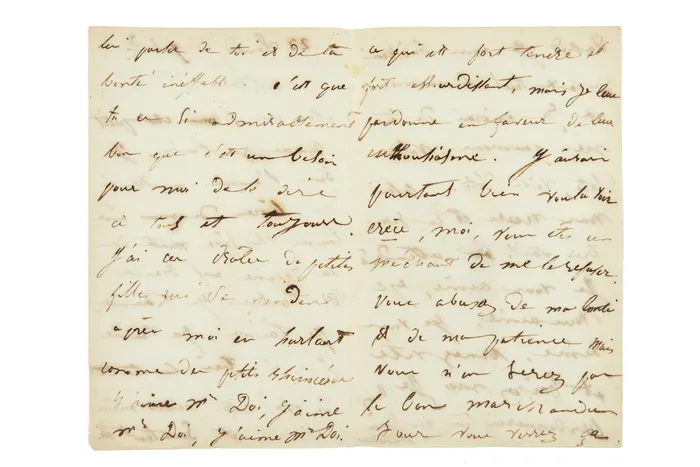 lui parle de toi et de ta
bonté ineffable. c'est que
tu es si admirablement
bon que c'est un besoin
pour moi de le dire
à tous et toujours.
J'ai ces drôles de petites
filles qui se
après moi en hurlant
comme des ptits rhinocéros
j'aime Mr Doi, j'aime
Mr Doi, j'aime Mr Doi.
ce qui est fort tendre et
fort assourdissant, mais je leur
pardonne en faveur de leur
enthousiasme. J'aurais
pourtant bien voulu voir
moi, vous êtes un
méchant de me le refuser.
Vous abusez de ma bonté
et de ma patience mais
vous n'en serez pas
le bon marchand un
jour vous verrez ça